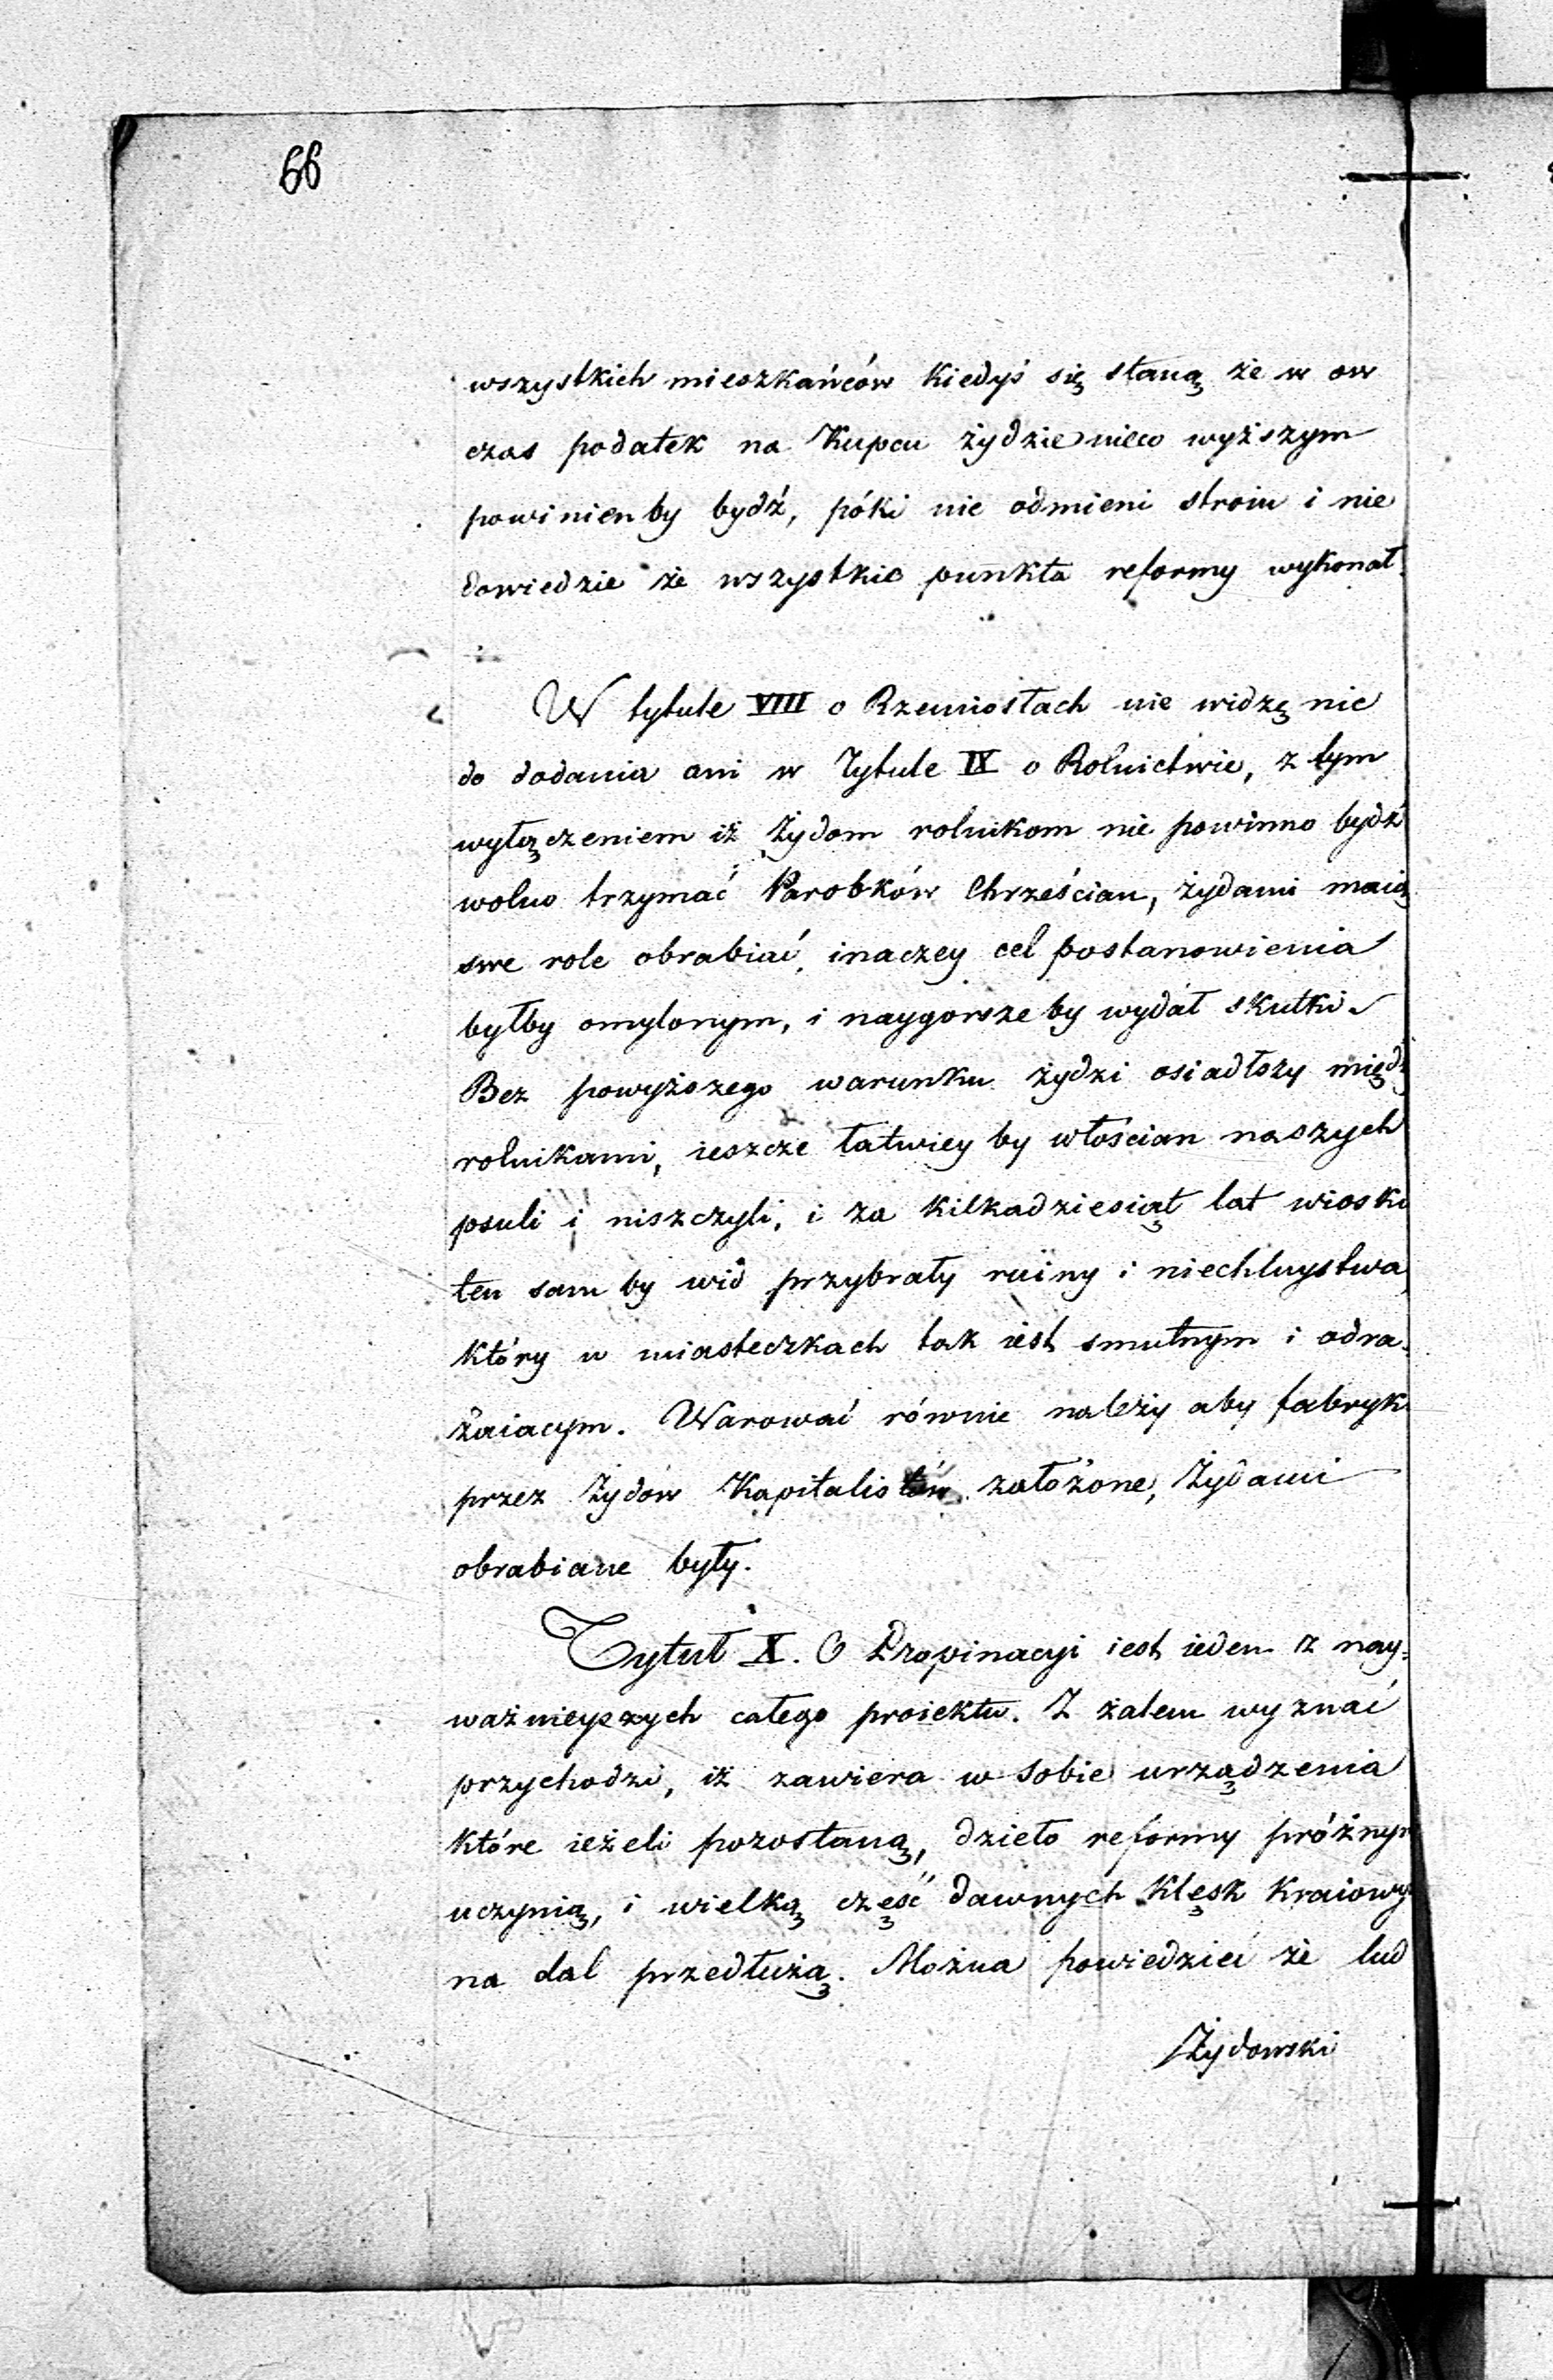 66
wszystkich mieszkańców kiedyś się staną że w ow
czas podatek na Kupcu żydzie nieco wyższym
powinienby bydź, póki nie odmieni stroiu i nie
dowiedzie że wszystkie punkta reformy wykonał.
W tytule VIII o Rzemiosłach nie widzę nic
do dodania ani w Tytule IX o Rolnictwie, z tym
wyłączeniem iż Żydom rolnikom nie powinno bydź
wolno trzymać Parobków Chrześcian, żydami maią
swe role obrabiać, inaczey cel postanowienia
byłby omylonym, i naygorsze by wydał skutki.
Bez powyższego warunku żydzi osiadłszy międz
rolnikami, ieszcze łatwiey by włościan naszych
psuli i niszczyli, i za kilkadziesiąt lat wioski
ten sam by wid przybrały ruiny i niechluystwa,
który w miasteczkach tak iest smutnym i odra-
żaiacym. Warować równie należy aby fabryk
przez Żydów Kapitalistów założone, Żydami
obrabiane były.
Tytuł X. O Propinacyi iest ieden z nay=
ważnieyszych całego proiektu. Z żalem wyznać
przychodzi, iż zawiera w sobie urządzenia
które ieżeli pozostaną, dzieło reformy próżnym
uczynią, i wielką część dawnych klęsk kraiowy
na dal przedłużą. Można powiedzieć że lud
Żydowski